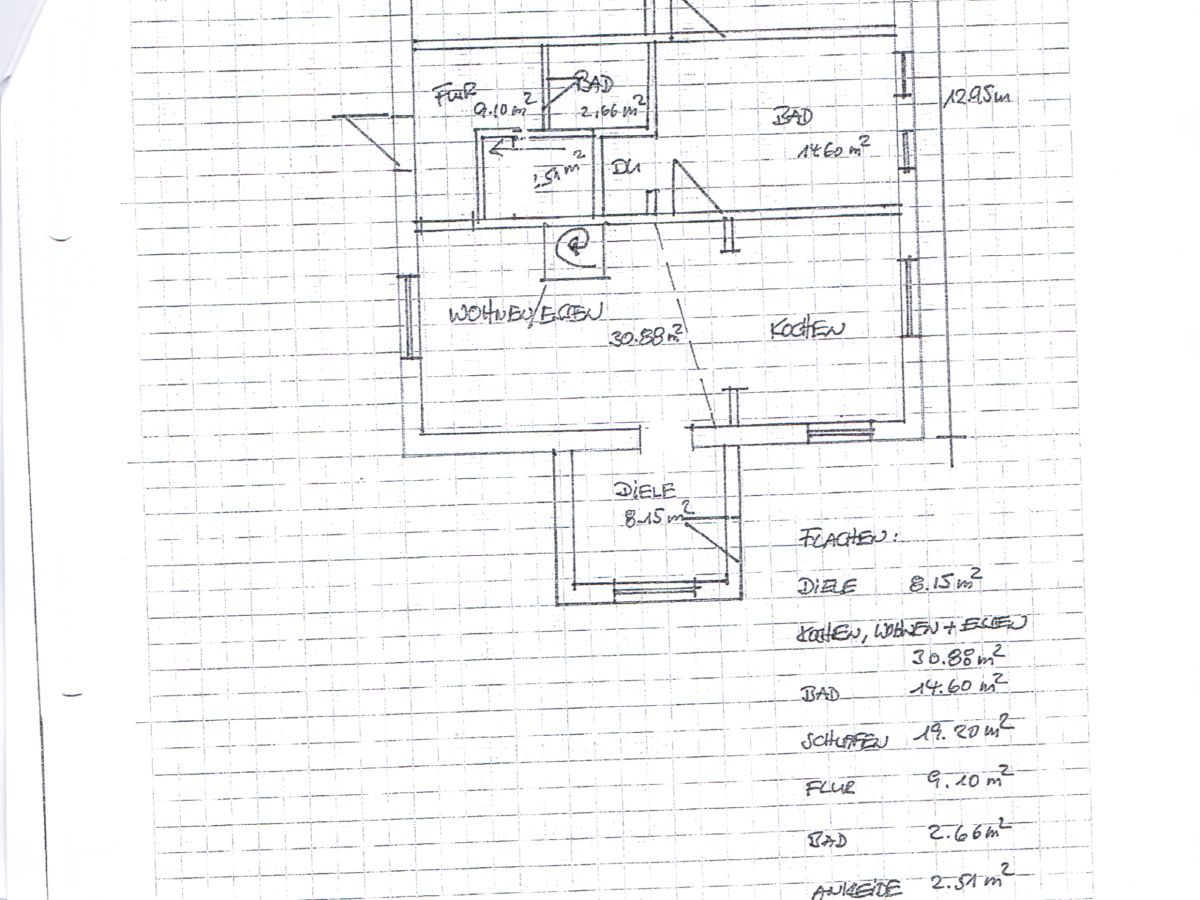 FLUR
9.10 m²
BAD
2.66 m²
12.95m
BAD
14.60 m²
2.51 m²
DU
WOHNEN/ESSEN
30.88 m²
KOCHEN
DIELE
8.15 m²
FLÄCHEN:
DIELE 8.15 m²
KOCHEN, WOHNEN + ESSEN
30.88 m²
BAD 14.60 m²
SCHLAFEN 19.20 m²
FLUR 9.10 m²
BAD 2.66 m²
ANKLEIDE 2.51 m²